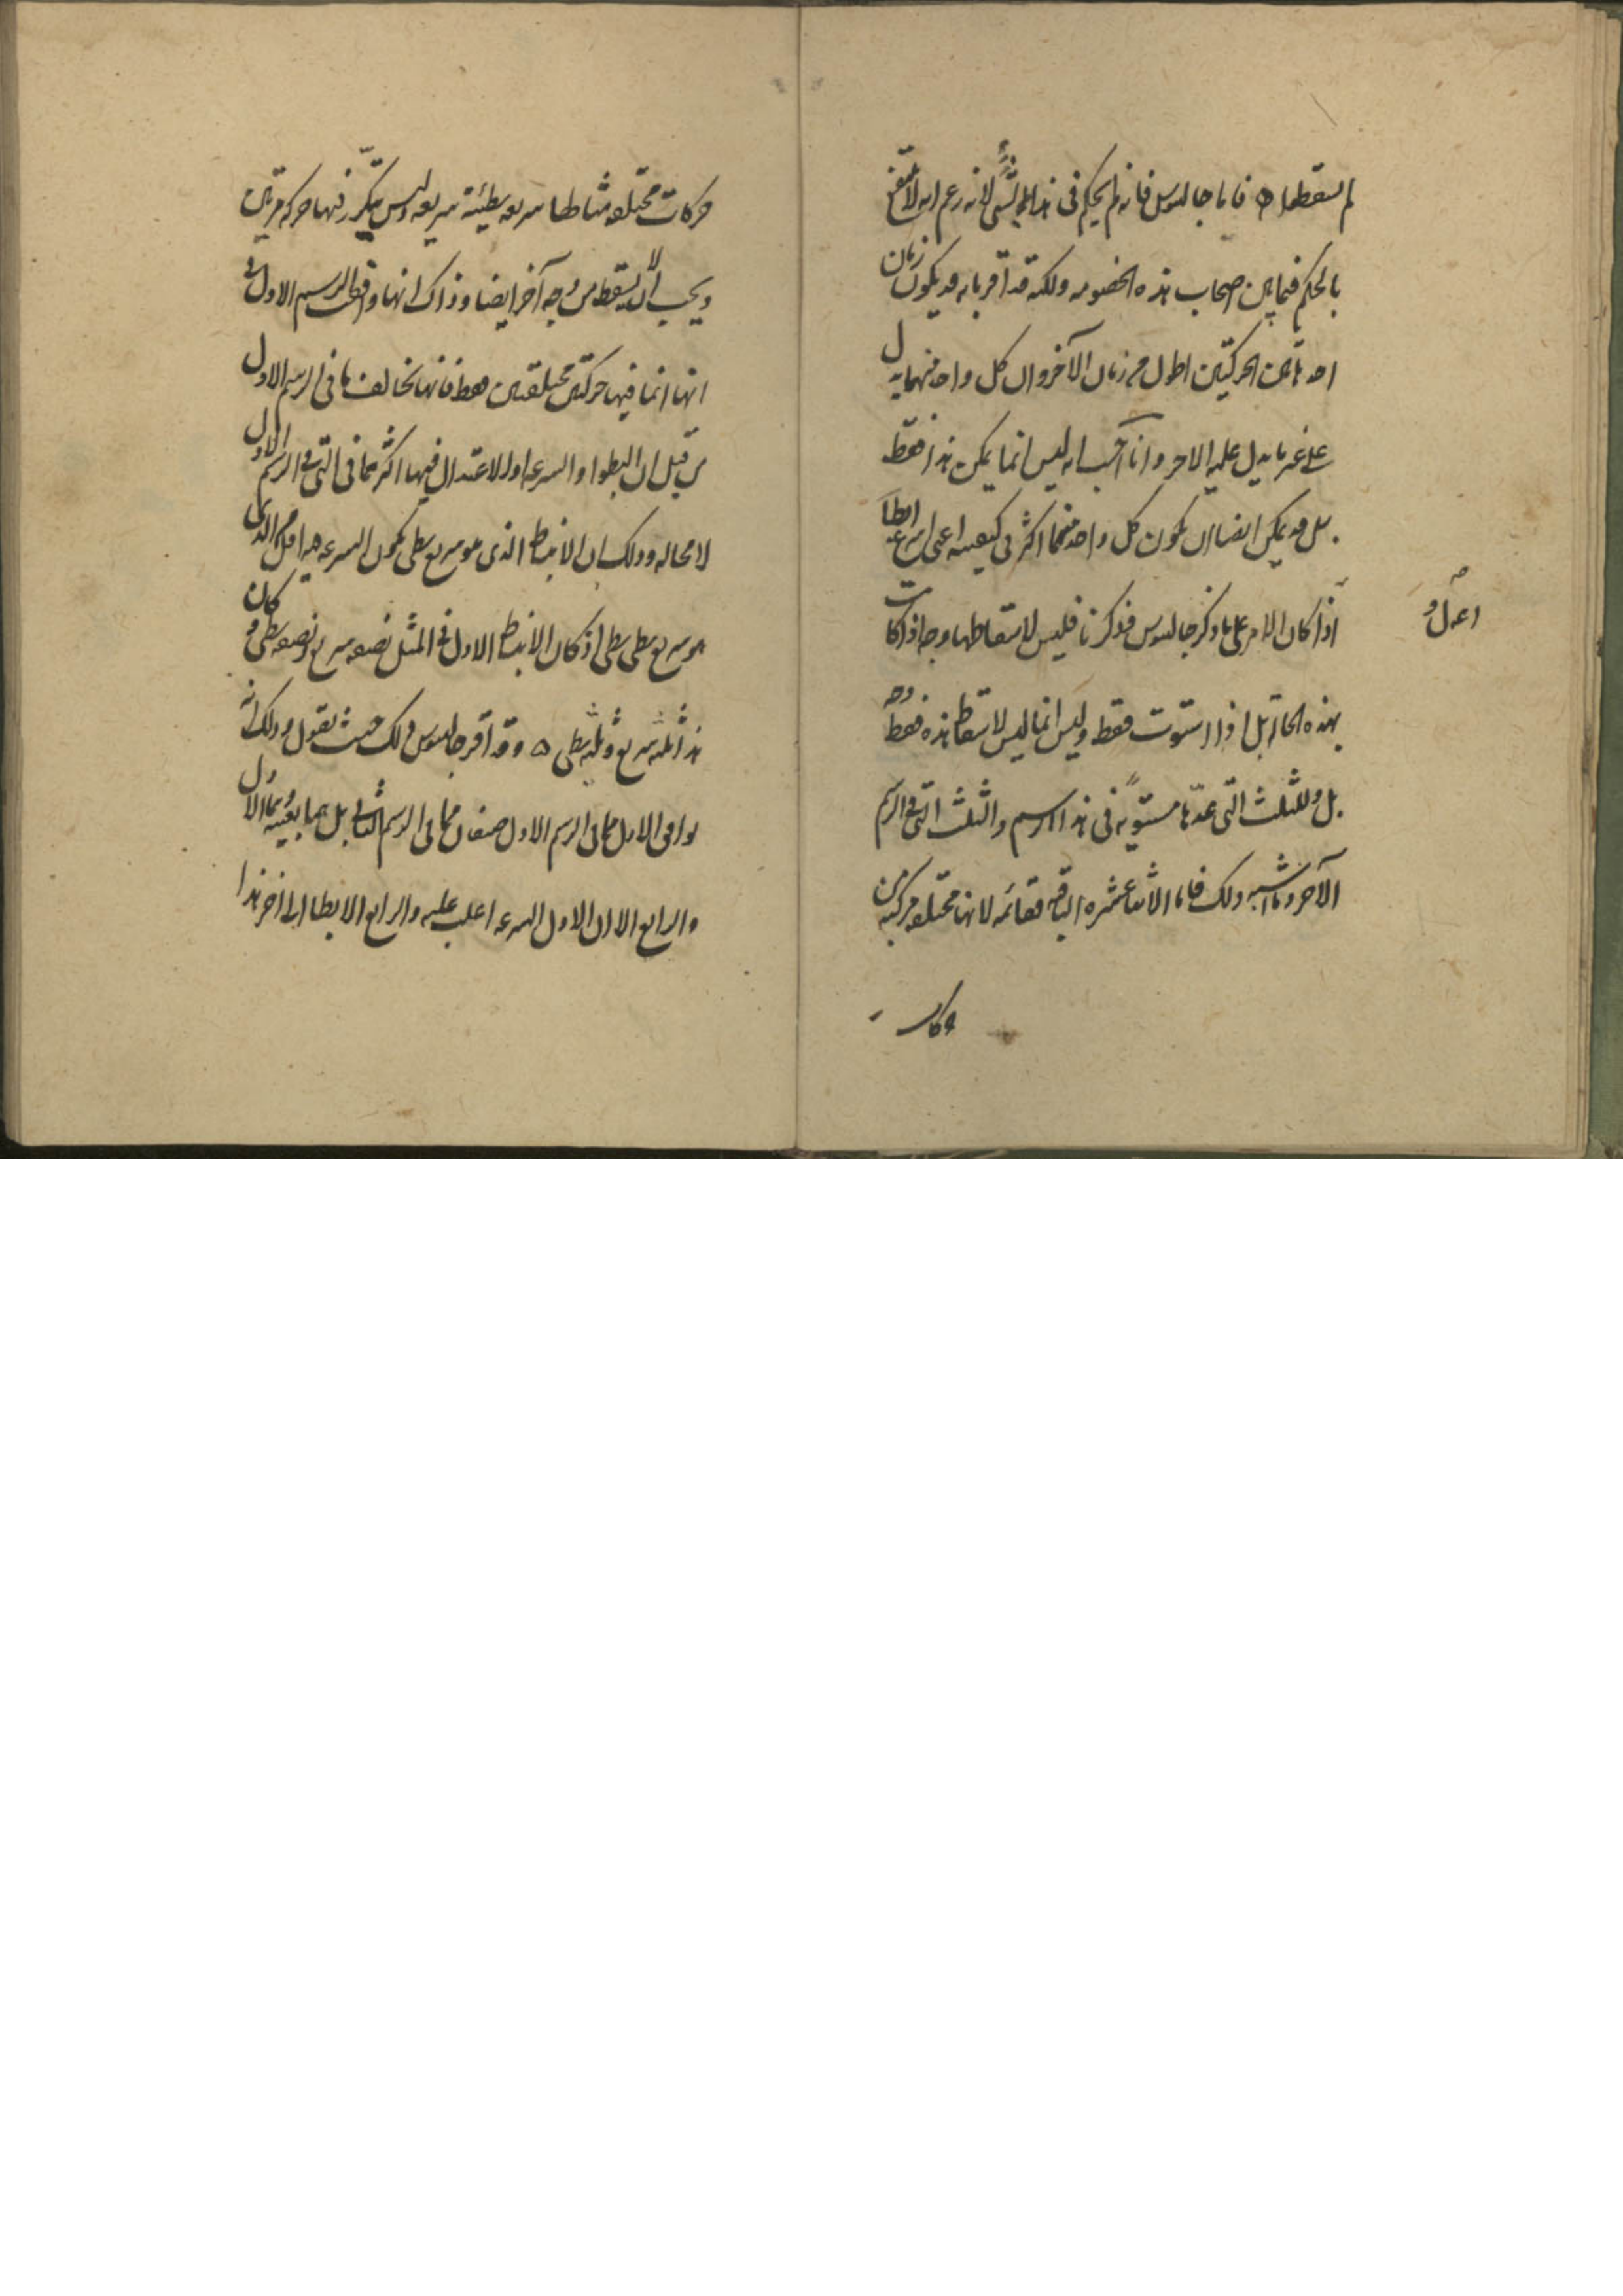 لم نسقطها ه فاما جالينوس فانه لم يحكم في هذا بشيء لانه زعم انه
بالحكم فيما بين اصحاب هذه الخصومه ولكنه قد اقر بانه قد يكون زمان
احد هاتين الحركتين اطول من زمان الآخر وان كل واحد منهما يدل
على غير ما يدل عليه الاخر وانا احسب انه ليس انما يمكن هذا فقط
بل قد يمكن ايضا ان يكون كل واحد منهما اكثر في كيفيته اعني اسرع ابطأ
اذا كان الامر على ما ذكر جالينوس فذكرنا فليس لاسقاطها وجه اذا كانت
بهذه الحال بل اذا استوت فقط وليس انما ليس لاسقاط هذه فقط وجه
بل وللثلث التي عدها مستوية في هذا الرسم والثلث التي في الرسم
الآخر وما اشبه ذلك فاما الاثنا عشره الباقيه فقائمه لانها مختلفه مركبه من
حركات
حركات مختلفه مثالها سريعه بطيئة سريعه وليس يتكرر فيها حركه مرتين
ويجب الا تسقط من وجه آخر ايضا وذاك انها وافقت الرسم الاول في
انها انما فيها حركتين مختلفتين فقط فانها تخالف ما في الرسم الاول
من قبل ان البطوا والسرعه اولا لاعتدال فيها اكثر مما في التي في الرسم الاول
لا محاله وذلك ان الانبساط الذي هو سريع بطى يكون السرعه فيه اقل من الذي
هو سريع بطى بطى اذ كان الانبساط الاول في المثل نصفه سريع ونصفه بطى وكان
هذا ثلثه سريع وثلثيه بطى ه وقد اقر جالينوس بذلك حيث يقول وذلك انه
يوافق الاول مما في الرسم الاول صنفان مما في الرسم الثاني بل هما بعينه وهما الاول
والرابع الا ان الاول السرعه اغلب عليه والرابع الابطا الى اخر هذا